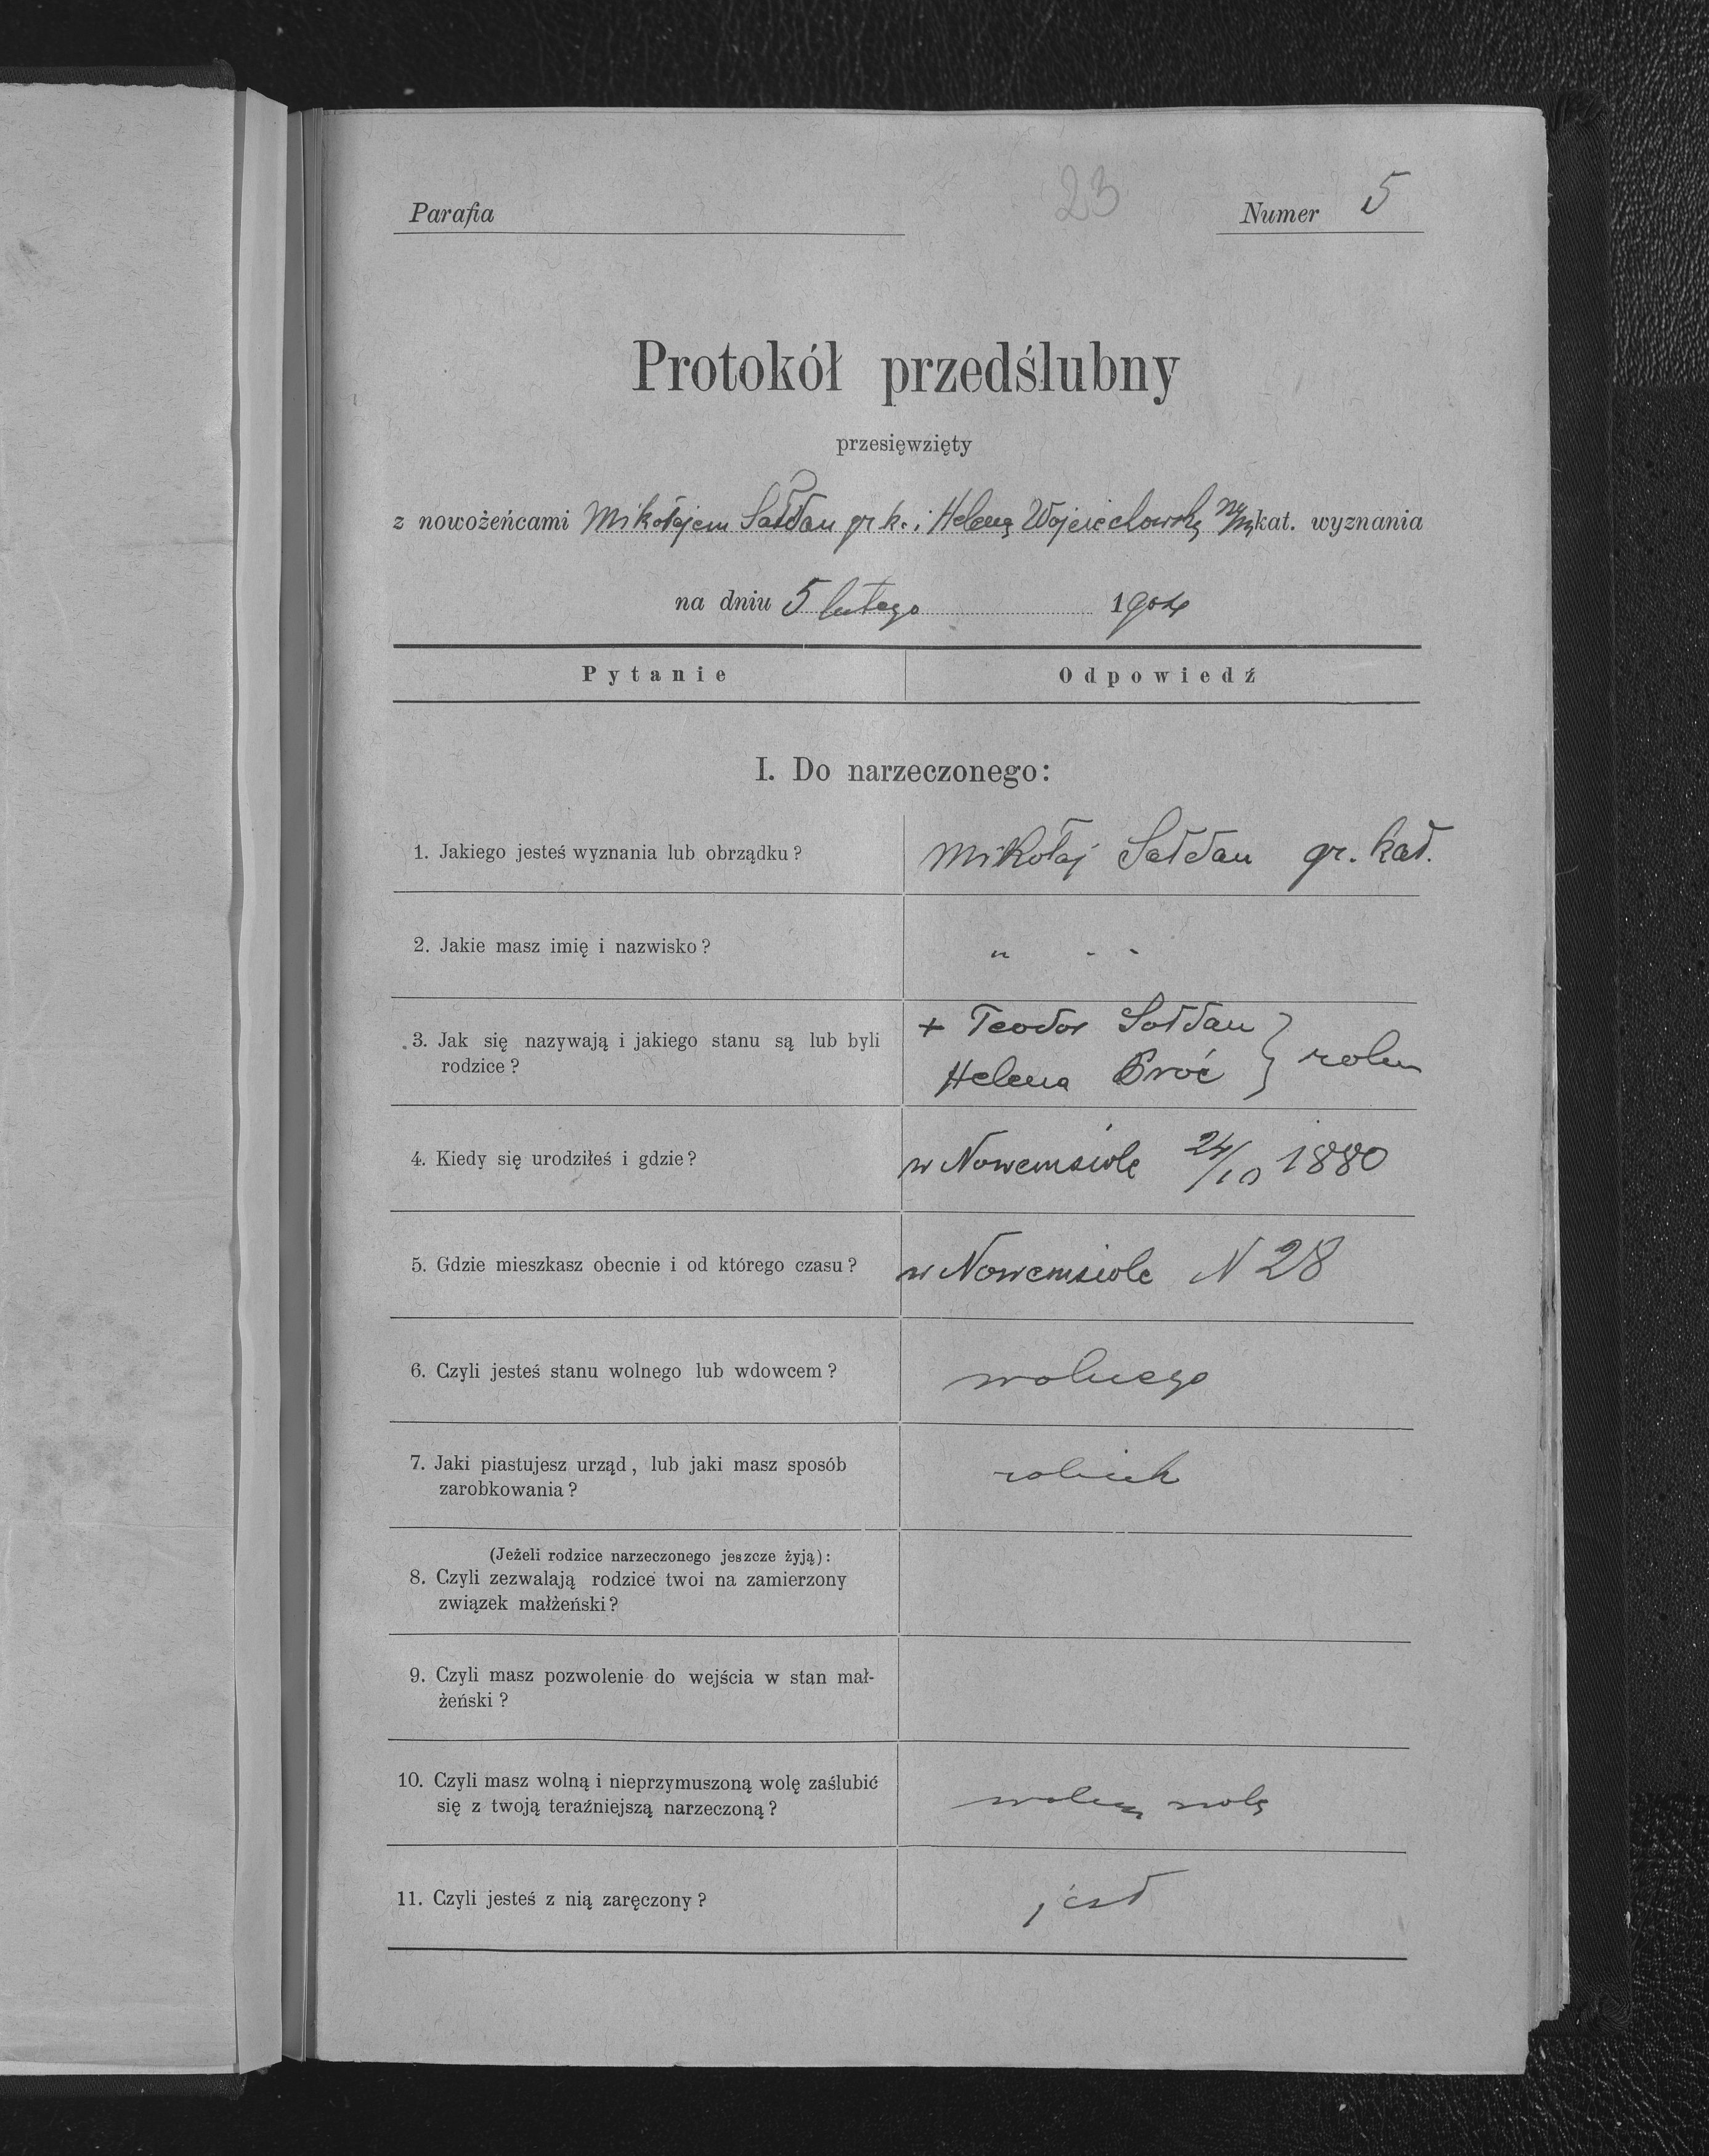 Parafia
23
Numer 5
Protokół przedślubny
przesięwzięty
z nowożeńcami Mikołajem Sałdan gr k. i Heleną Wojciechowską kat. wyznania
na dniu 5 lutego 1904
Pytanie Odpowiedź
I. Do narzeczonego:
1. Jakiego jesteś wyznania lub obrządku? Mikołaj Sałdan gr. kat.
2. Jakie masz imię i nazwisko? " - -
3. Jak się nazywają i jakiego stanu są lub byli + Teodor Sołdan
rodzice? Helena } roln
4. Kiedy się urodziłeś i gdzie? w Nowemsiole 24/10 1880
5. Gdzie mieszkasz obecnie i od którego czasu? w Nowemsiole N 28
6. Czyli jesteś stanu wolnego lub wdowcem? wolnego
7. Jaki piastujesz urząd, lub jaki masz sposób rolnik
zarobkowania?
(Jeżeli rodzice narzeczonego jeszcze żyją):
8. Czyli zezwalają rodzice twoi na zamierzony
związek małżeński?
9. Czyli masz pozwolenie do wejścia w stan mał-
żeński?
10. Czyli masz wolną i nieprzymuszoną wolę zaślubić wolną wolę
się z twoją teraźniejszą narzeczoną?
11. Czyli jesteś z nią zaręczony? jest